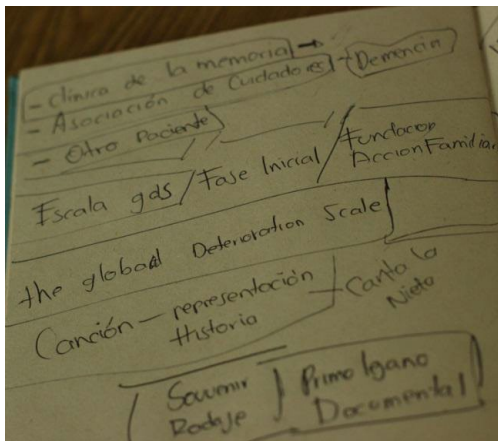 - Clinica de la memoria →
- Asociación de Cuidadores - Demencia
- Otro paciente
Escala gds / Fase Inicial / Fundacion
Accion Familiar
the global Deterioration Scale
Canción - representación
Historia
Canto la
Nieto
Rodaje
Primo
Documental